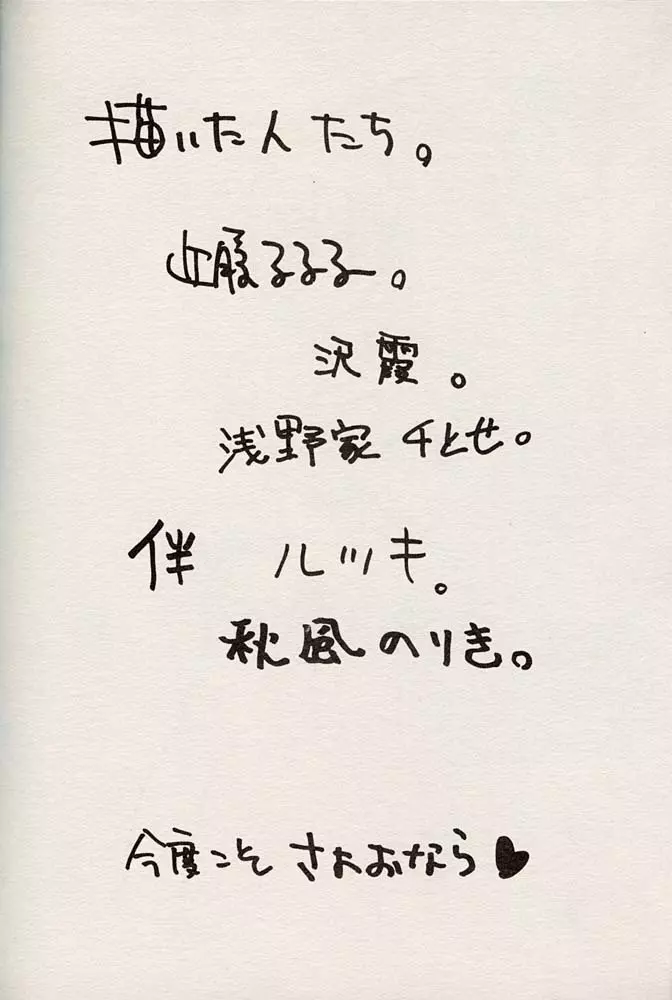 描いた人たち。
るるる。
沢霞。
浅野家千とせ。
伴 ルツキ。
秋風のりき。
今度こそ さよおなら♥